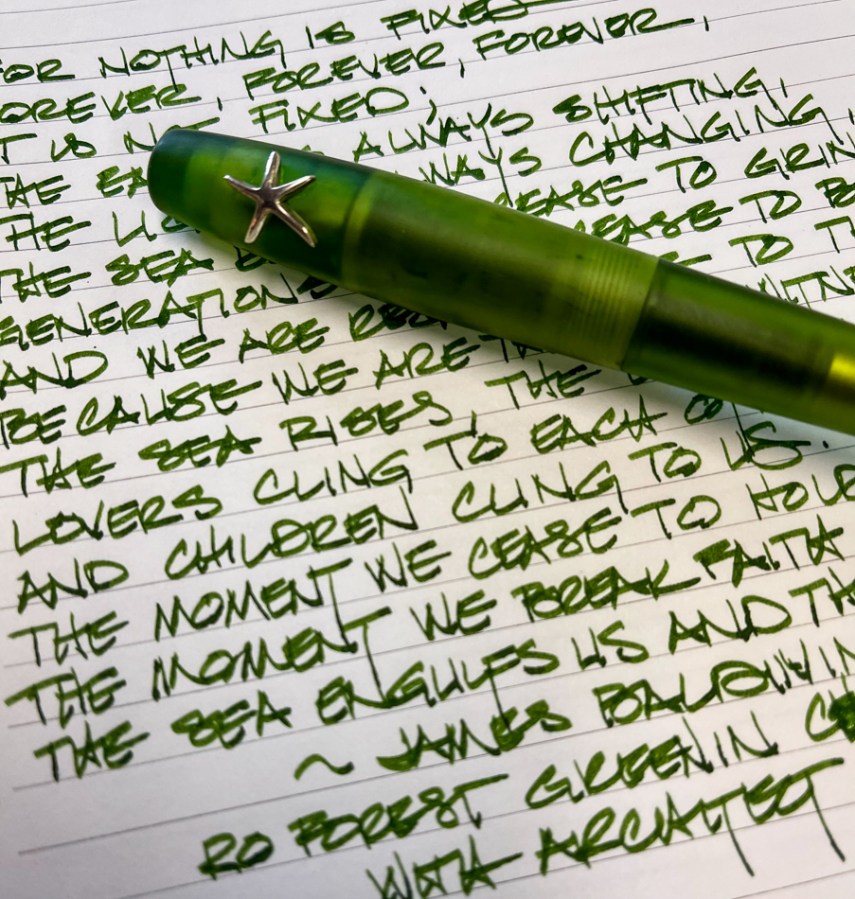 OR NOTHING IS FIXED
OREVER, FOREVER, FOREVER,
T IS N T FIXED;
THE EA ALWAYS SHIFTING,
THE LIG WAYS CHANGING,
THE SEA D EASE TO GRIN
GENERATIONS EASE TO B
AND WE ARE RES TO TH
BECAUSE WE ARE TH WITN
THE SEA RISES, THE L
LOVERS CLING TO EACH OT
AND CHILDREN CLING TO US.
THE MOMENT WE CEASE TO HOLD
THE MOMENT WE BREAK FAITH
THE SEA ENGULFS US AND TH
~ JAMES BALDWIN
RO FOREST GREEN IN
WITH ARCHITECT